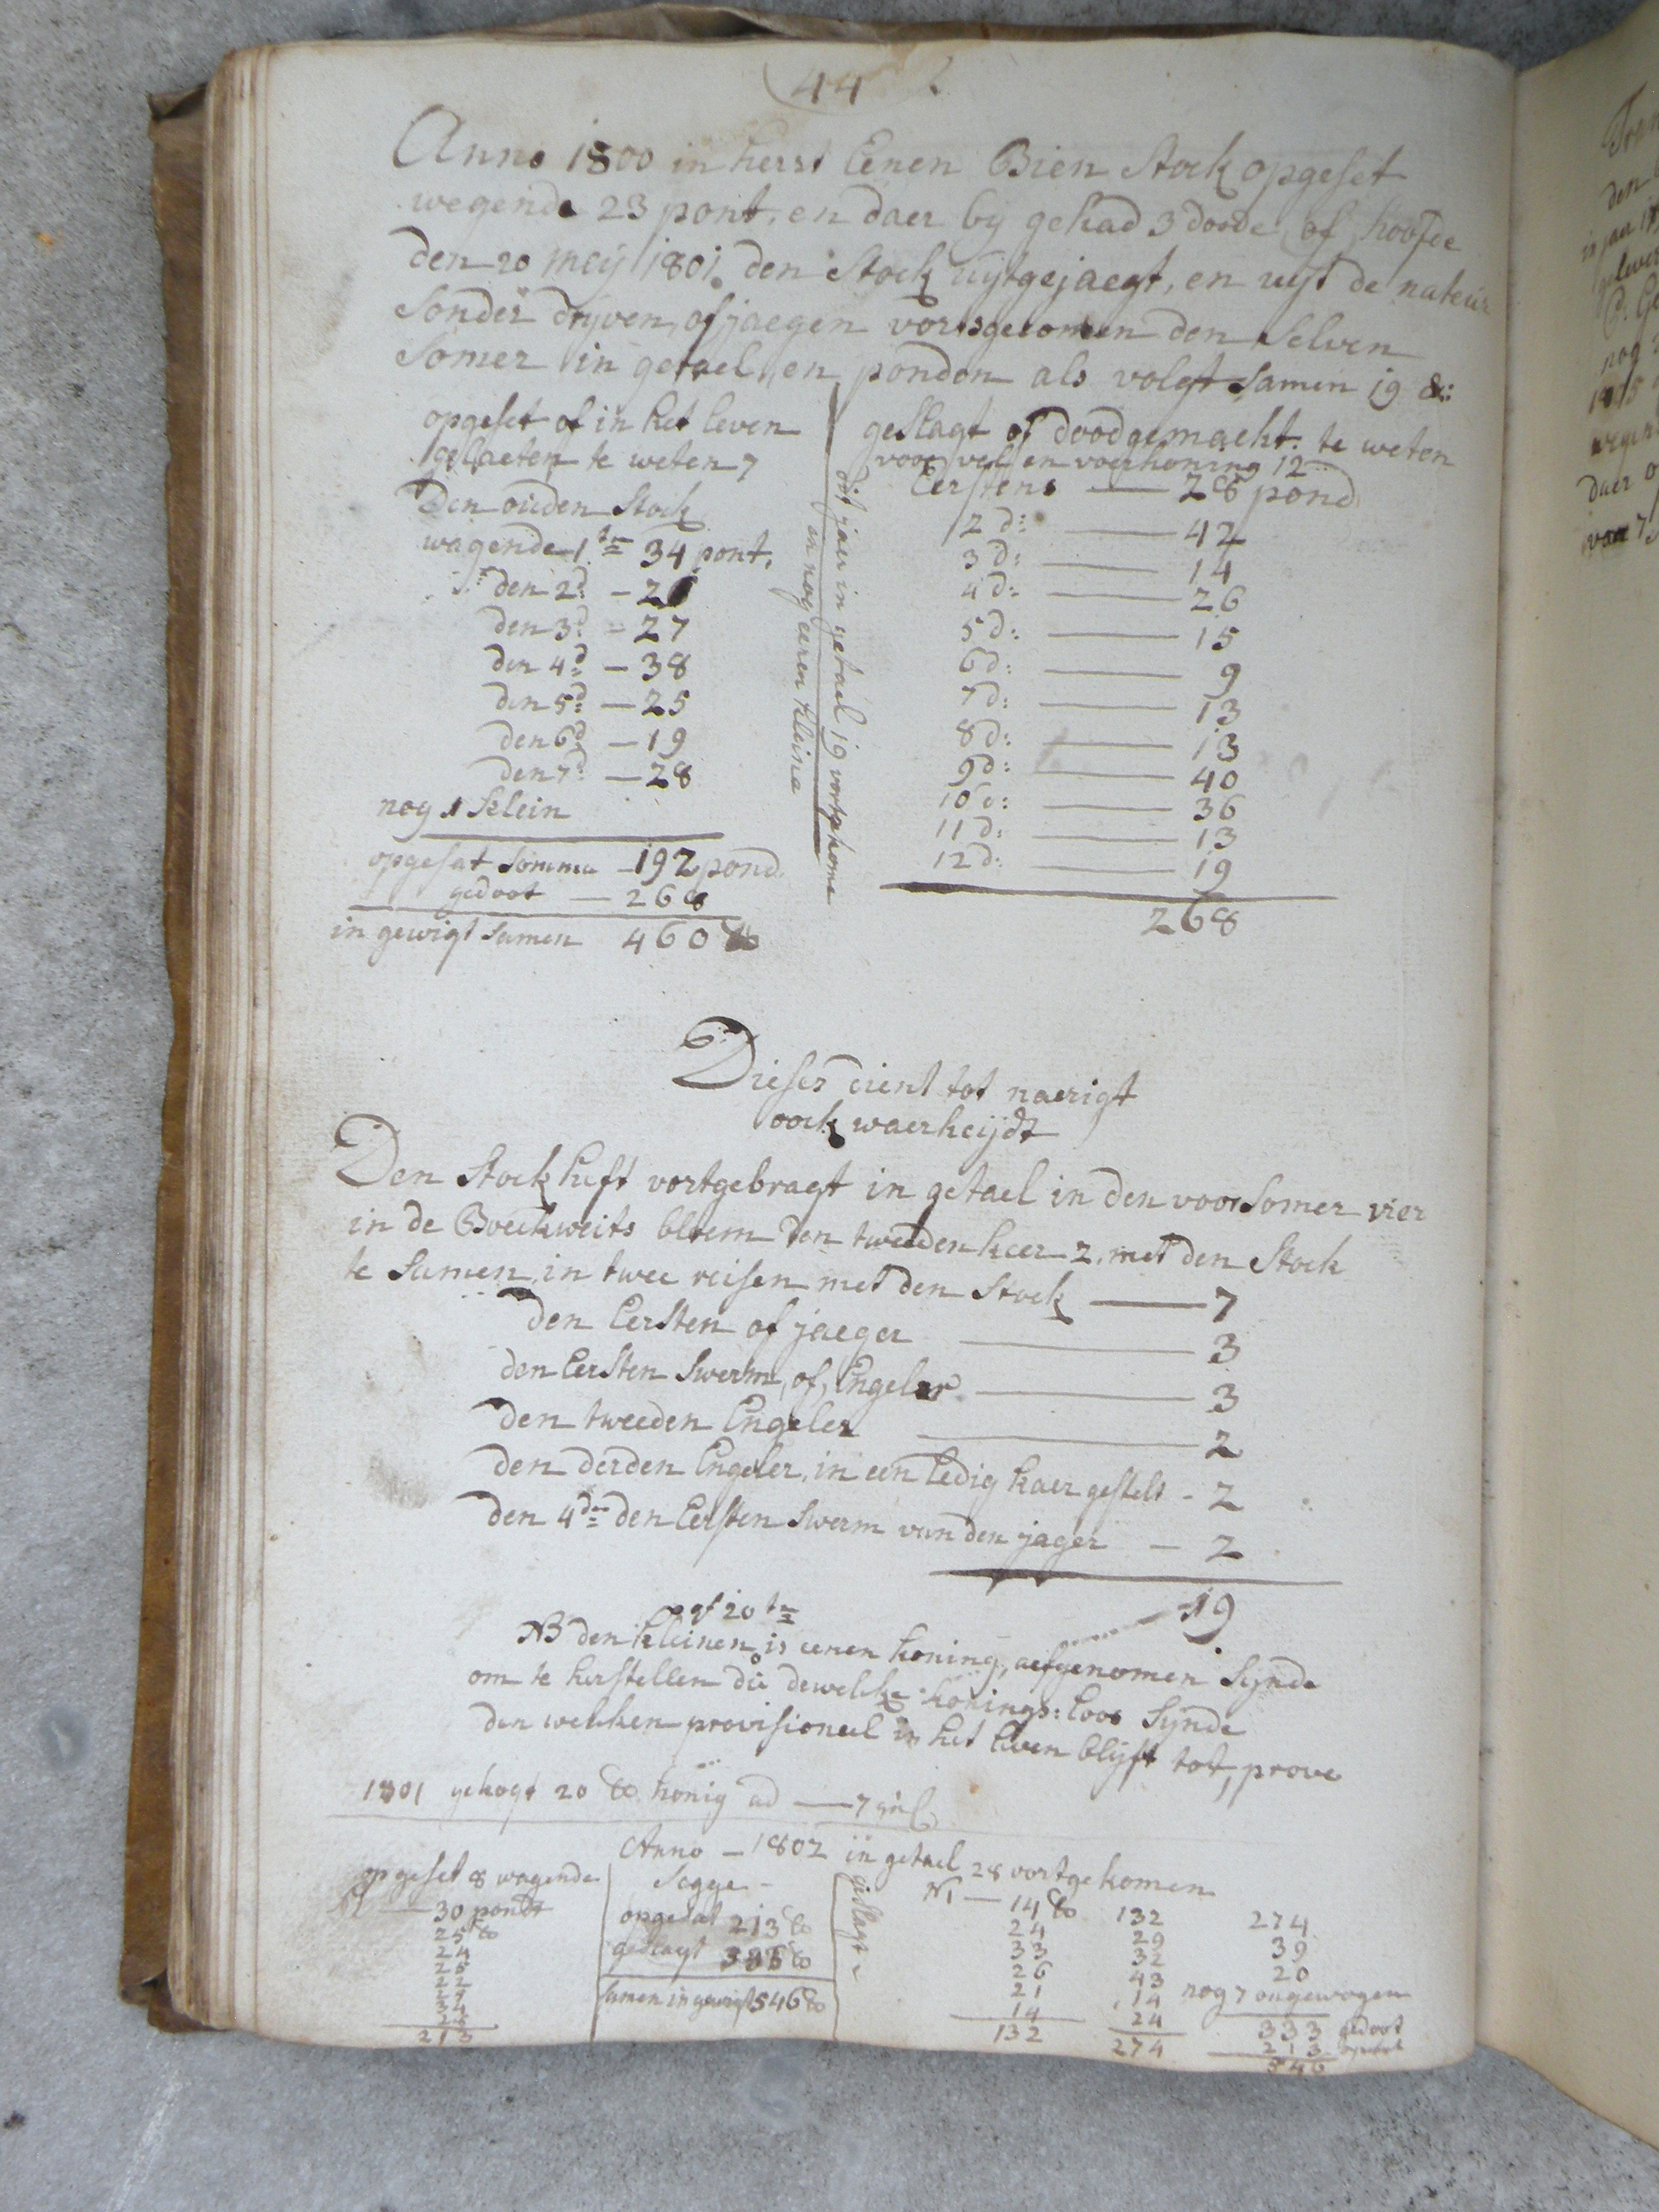 44
Anno 1800 in herst Eenen Bien Stock opgeset
wegende 23 pont, en daer by gehad 3 doode of hoofde
den 20 meij 1801. den Stock uijtgejaegt, en uijt de nateur
Sonder drijven, of jaegen vortsgecomen den Selven
Somer in getael en ponden als volgt Samen 19 &:
opgeset of in het leven
gelaeten te weten 7
Den ouden Stock
wagende 1 te 34 pont,
den 2d - 21
den 3d - 27
den 4d - 38
den 5d - 25
den 6d - 19
den 7d - 28
nog 1 klein
opgesat Somma - 192 pond
gedoot - 268
in gewigt Samen 460 ℔
dit jaer in getael 19 vortgekome
en nog eenen kleine
geslagt of doodgemacht te weten
voor vel en voerhoning 12
Eerstens - 28 pond
2 d: - 42
3 d: - 14
4 d: - 26
5 d: - 15
6 d: - 9
7 d: - 13
8 d: - 13
9 d: - 40
10 d: - 36
11 d: - 13
12 d: - 19
268
Dieser dient tot naerigt
oock waerheijdt
Den Stock heft vortgebragt in getael in den voor Somer vier
in de Boeckweits bloem den tweeden keer 2, met den Stock
te Samen in twee reisen met den Stock - 7
den Eersten of jaeger - 3
den Eersten Swerm, of, Engeler - 3
den tweeden Engeler - 2
den derden Engeler, in een ledig kaer gestelt - 2
den 4den den Eersten Swerm van den jager - 2
19
of 20 te
NB den kleinen is eenen koning, aefgenomen Sijnde
om te herstellen die dewelcke konings: loos Sijnde
den welcken provisioneel in het leven blijft tot, prove
1801 gekogt 20 ℔ honig ad - 7
Anno - 1802 in getael 28 vortgekomen
opgeset 8 wagende
30 pondt
25 ℔
24
25
22
27
34
26
213
Segge -
opgesat 213 ℔
geslagt 333 ℔
Samen in gewigt 546 ℔
geslagt
N1 - 14 ℔
24
33
26
21
14
132
132
29
32
43
14
24
274
274
39
20
nog 7 ongewogen
333 gedoot
213 opgesat
546